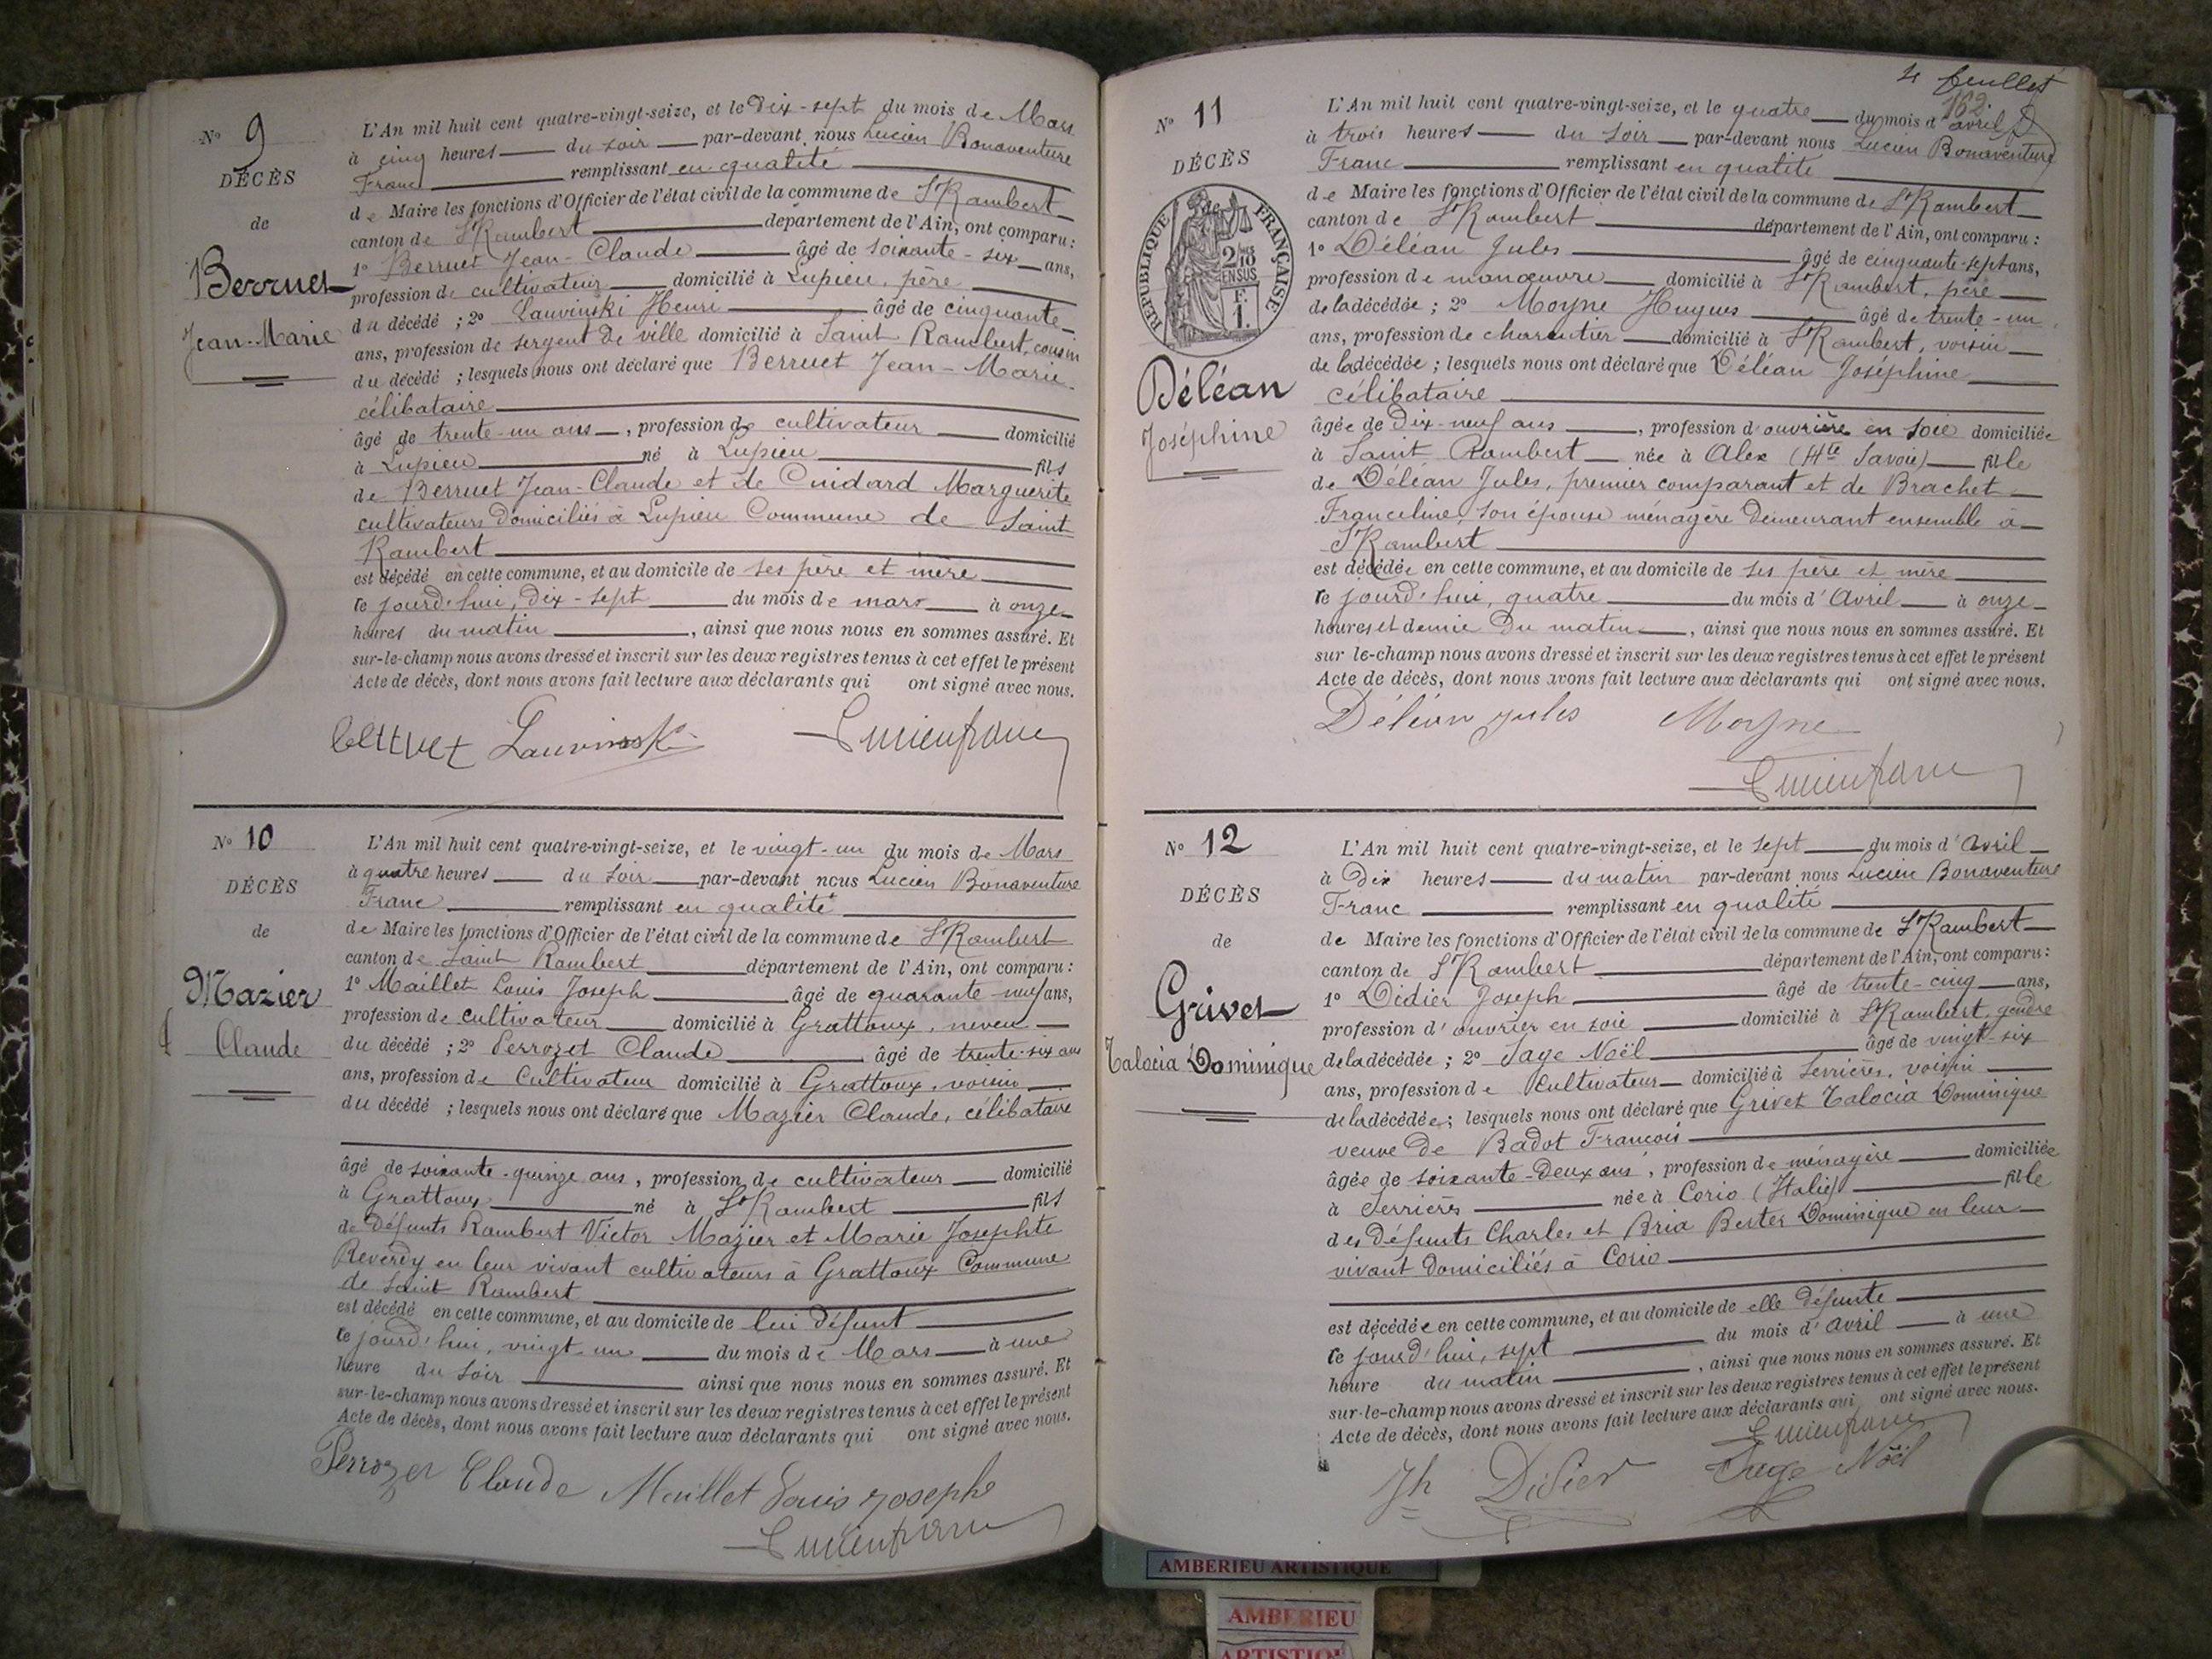 No 9
DÉCÈS
de
Berruet
Jean-Marie
L'An mil huit cent quatre-vingt-seize, et le Dix-sept du mois de Mars
à cinq heures du soir par-devant nous Lucien Bonaventure
Franc remplissant en qualité
de Maire les fonctions d'Officier de l'état civil de la commune de St Rambert
canton de St Rambert département de l'Ain, ont comparu :
1o Berruet Jean-Claude âgé de soixante-six ans,
profession de cultivateur domicilié à Lupieu, père
du décédé ; 2o Lauvinski Henri âgé de cinquante
ans, profession de sergent de ville domicilié à Saint Rambert, cousin
du décédé ; lesquels nous ont déclaré que Berruet Jean-Marie
célibataire
âgé de trente-un ans, profession de cultivateur domicilié
à Lupieu né à Lupieu fils
de Berruet Jean-Claude et de Cuidard Marguerite
cultivateurs domiciliés à Lupieu Commune de Saint
Rambert
est décédé en cette commune, et au domicile de ses père et mère
ce jourd'hui, dix-sept du mois de mars à onze
heures du matin, ainsi que nous nous en sommes assuré. Et
sur-le-champ nous avons dressé et inscrit sur les deux registres tenus à cet effet le présent
Acte de décès, dont nous avons fait lecture aux déclarants qui ont signé avec nous.
Lauvinski Lucien franc
No 10
DÉCÈS
de
Mazier
Claude
L'An mil huit cent quatre-vingt-seize, et le vingt-un du mois de Mars
à quatre heures du soir par-devant nous Lucien Bonaventure
Franc remplissant en qualité
de Maire les fonctions d'Officier de l'état civil de la commune de St Rambert
canton de Saint Rambert département de l'Ain, ont comparu :
1o Maillet Louis Joseph âgé de quarante-neuf ans,
profession de cultivateur domicilié à Grattoux, neveu
du décédé ; 2o Perrozet Claude âgé de trente-six ans
ans, profession de Cultivateur domicilié à Grattoux, voisin
du décédé ; lesquels nous ont déclaré que Mazier Claude, célibataire
âgé de soixante-quinze ans, profession de cultivateur domicilié
à Grattoux né à St Rambert fils
de Défunts Rambert Victor Mazier et Marie Josephte
Reverdy en leur vivant cultivateurs à Grattoux Commune
de Saint Rambert
est décédé en cette commune, et au domicile de lui défunt
ce jourd'hui, vingt-un du mois de Mars à une
heure du soir ainsi que nous nous en sommes assuré. Et
sur-le-champ nous avons dressé et inscrit sur les deux registres tenus à cet effet le présent
Acte de décès, dont nous avons fait lecture aux déclarants qui ont signé avec nous.
Perrozet Claude Maillet Louis Josephe
Lucien franc
4 feuillet
162.
No 11
DÉCÈS
de
RÉPUBLIQUE FRANÇAISE
2/10 EN SUS
F. 1.
Déléan
Joséphine
L'An mil huit cent quatre-vingt-seize, et le quatre du mois d'avril
à trois heures du soir par-devant nous Lucien Bonaventure
Franc remplissant en qualité
de Maire les fonctions d'Officier de l'état civil de la commune de St Rambert
canton de St Rambert département de l'Ain, ont comparu :
1o Déléan Jules âgé de cinquante-sept ans,
profession de manœuvre domicilié à St Rambert, père
de la décédée ; 2o Moyne Hugues âgé de trente-un
ans, profession de charcutier domicilié à St Rambert, voisin
de la décédée ; lesquels nous ont déclaré que Déléan Joséphine
célibataire
âgée de Dix-neuf ans, profession d'ouvrière en soie domiciliée
à Saint Rambert née à Alex (Hte Savoie) fille
de Déléan Jules, premier comparant et de Brachet
Franceline, son épouse ménagère demeurant ensemble à
St Rambert
est décédée en cette commune, et au domicile de ses père et mère
ce jourd'hui, quatre du mois d'Avril à onze
heures et demie du matin, ainsi que nous nous en sommes assuré. Et
sur le-champ nous avons dressé et inscrit sur les deux registres tenus à cet effet le présent
Acte de décès, dont nous avons fait lecture aux déclarants qui ont signé avec nous.
Déléan jules Moyne
Lucien franc
No 12
DÉCÈS
de
Grivet
Talocia Dominique
L'An mil huit cent quatre-vingt-seize, et le sept du mois d'avril
à Dix heures du matin par-devant nous Lucien Bonaventure
Franc remplissant en qualité
de Maire les fonctions d'Officier de l'état civil de la commune de St Rambert
canton de St Rambert département de l'Ain, ont comparu :
1o Didier Joseph âgé de trente-cinq ans,
profession d'ouvrier en soie domicilié à St Rambert, gendre
de la décédée ; 2o Sage Noël âgé de vingt-six
ans, profession de Cultivateur domicilié à Serrières, voisin
de la décédée ; lesquels nous ont déclaré que Grivet Talocia Dominique
veuve de Badot François
âgée de soixante-deux ans, profession de ménagère domiciliée
à Serrières née à Corio (Italie) fille
des Défunts Charles et Bria Berter Dominique en leur
vivant domiciliés à Corio
est décédée en cette commune, et au domicile de elle défunte
ce jourd'hui, sept du mois d'avril à une
heure du matin, ainsi que nous nous en sommes assuré. Et
sur-le-champ nous avons dressé et inscrit sur les deux registres tenus à cet effet le présent
Acte de décès, dont nous avons fait lecture aux déclarants qui ont signé avec nous.
Lucien franc
Jh Didier Sage Noël
AMBERIEU ARTISTIQUE
AMBERIEU